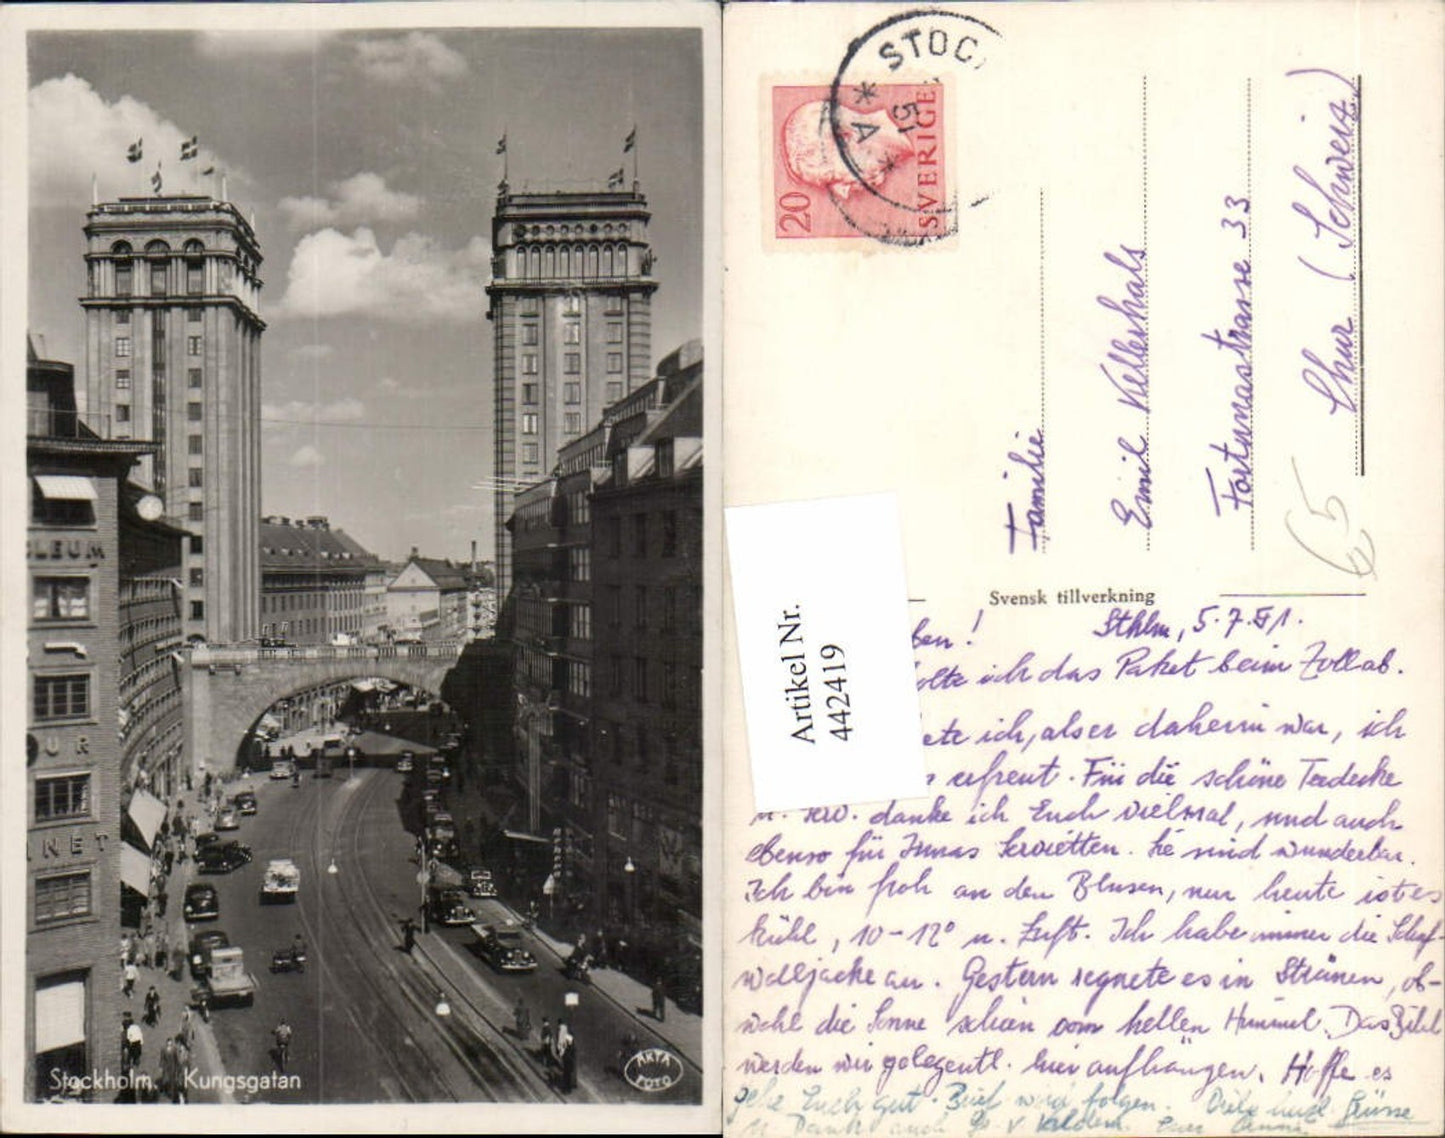 LEUM
UR
NET
Stockholm. Kungsgatan
ÄKTA
FOTO
STOC
51
* A *
20
SVERIGE
Familie
Emil Kellerhals
Fortunastrasse 33
Chur (Schweiz)
65
Artikel Nr.
4424119
Svensk tillverkning
ben! Sthlm, 5.7.51.
olte ich das Paket beim Zoll ab.
ete ich, als er daheim war, ich
erfreut. Für die schöne
danke ich Euch vielmal, und auch
ebenso für Servietten. Sie sind wunderbar.
Ich bin froh an den Blusen, nur heute ist es
kühl, 10-12° u. Luft. Ich habe immer die Schaf-
wolljacke an. Gestern regnete es in Strömen, ob-
wohl die Sonne schien vom hellen Himmel. Das Bild
werden wir gelegentl. hier aufhängen. Hoffe es
gehe Euch gut. Brief wird folgen. Grüsse
u. Dank auch